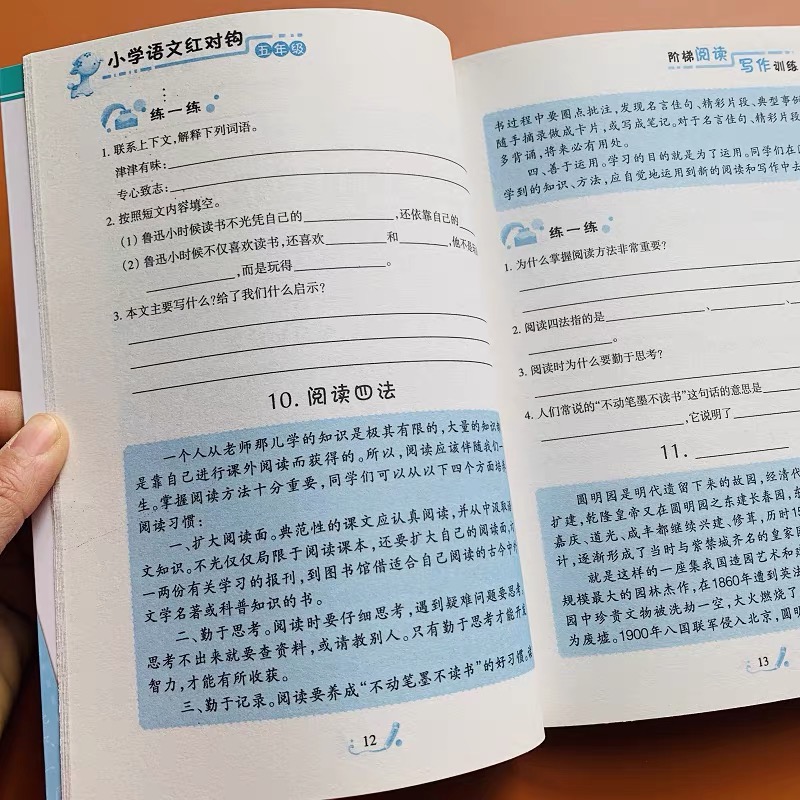 小学语文红对钩
五年级
练一练
1. 联系上下文,解释下列词语。
津津有味:
专心致志:
2. 按照短文内容填空。
(1) 鲁迅小时候读书不光凭自己的____,还依靠自己的
(2) 鲁迅小时候不仅喜欢读书,还喜欢____和____,他不是
____,而是玩得____。
3. 本文主要写什么?给了我们什么启示?
10. 阅读四法
一个人从老师那儿学的知识是极其有限的,大量的知识
是靠自己进行课外阅读而获得的。所以,阅读应该伴随我们一
生。掌握阅读方法十分重要,同学们可以从以下四个方面培养
阅读习惯:
一、扩大阅读面。典范性的课文应认真阅读,并从中汲取
文知识。不光仅仅局限于阅读课本,还要扩大自己的阅读面,
一两份有关学习的报刊,到图书馆借适合自己阅读的古今中外
文学名著或科普知识的书。
二、勤于思考。阅读时要仔细思考,遇到疑难问题要思考,
思考不出来就要查资料,或请教别人。只有勤于思考才能开
智力,才能有所收获。
三、勤于记录。阅读要养成“不动笔墨不读书”的好习惯。
12
阶梯阅读
写作训练
书过程中要圈点批注,发现名言佳句、精彩片段、典型事例
随手摘录做成卡片,或写成笔记。对于名言佳句、精彩片段
多背诵,将来必有用处。
四、善于运用。学习的目的就是为了运用。同学们在
学到的知识、方法,应自觉地运用到新的阅读和写作中去
练一练
1. 为什么掌握阅读方法非常重要?
2. 阅读四法指的是____、____、
____。
3. 阅读时为什么要勤于思考?
4. 人们常说的“不动笔墨不读书”这句话的意思是
____,它说明了
11.
圆明园是明代遗留下来的故园,经清代
扩建,乾隆皇帝又在圆明园之东建长春园,东
嘉庆、道光、咸丰都继续兴建、修葺,历时15
计,逐渐形成了当时与紫禁城齐名的皇家园
就是这样的一座集我国造园艺术和建
规模最大的园林杰作,在1860年遭到英法
园中珍贵文物被洗劫一空,大火燃烧了
为废墟。1900年八国联军侵入北京,圆明
13